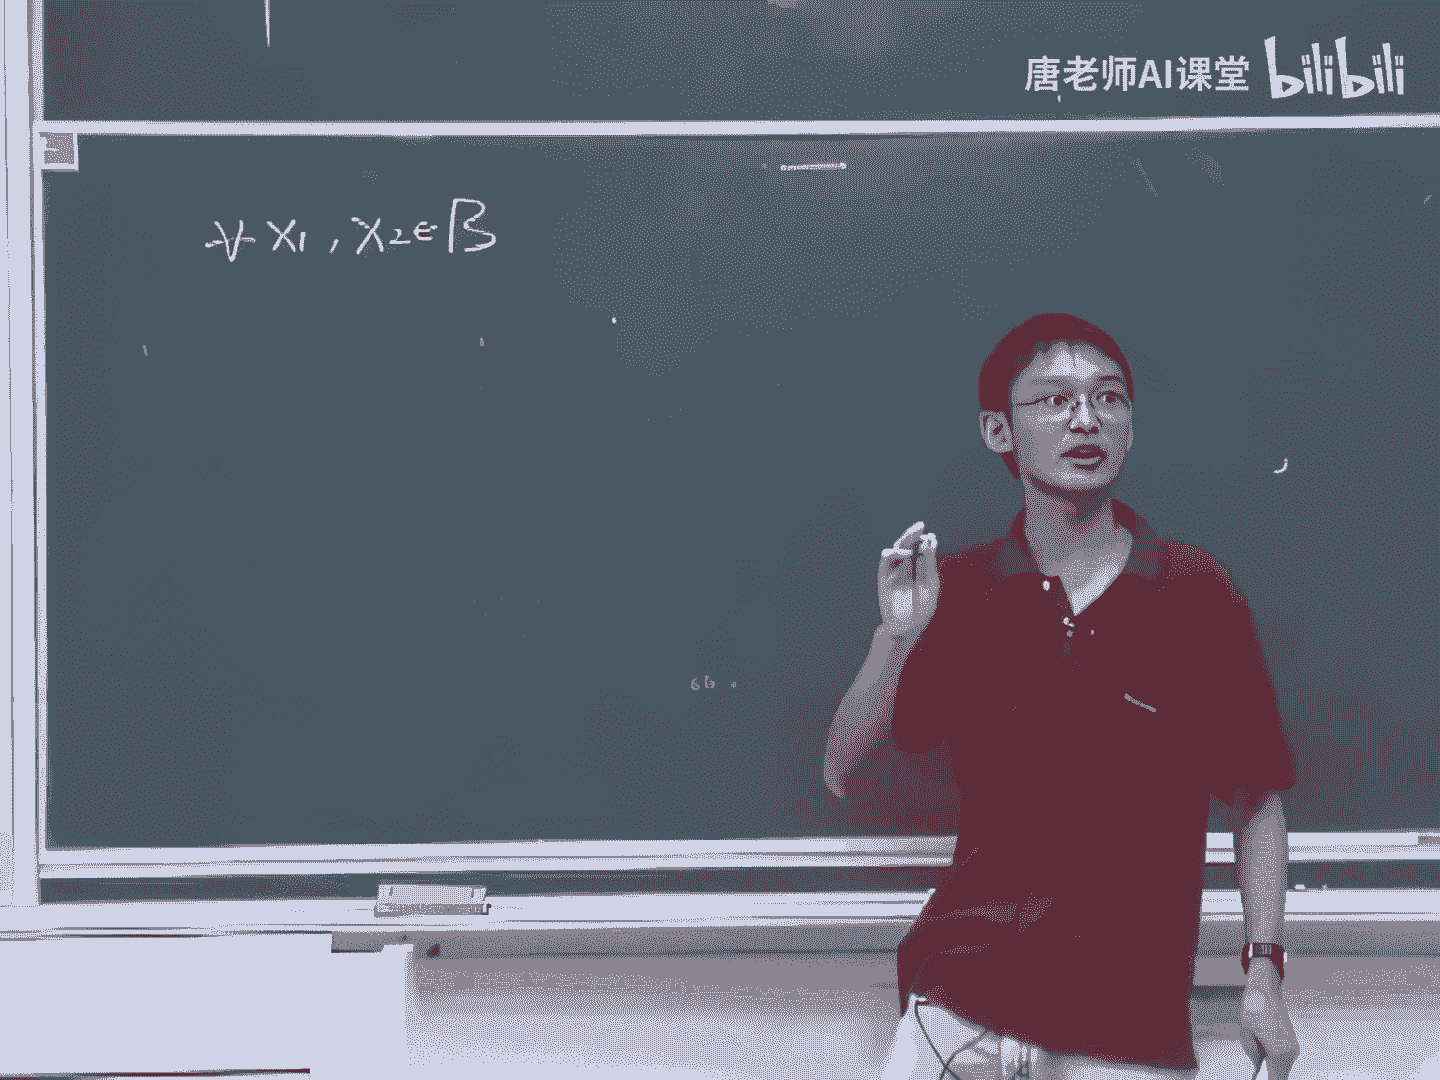 唐老师AI课堂 bilibili
∀ x₁, x₂ ∈ B